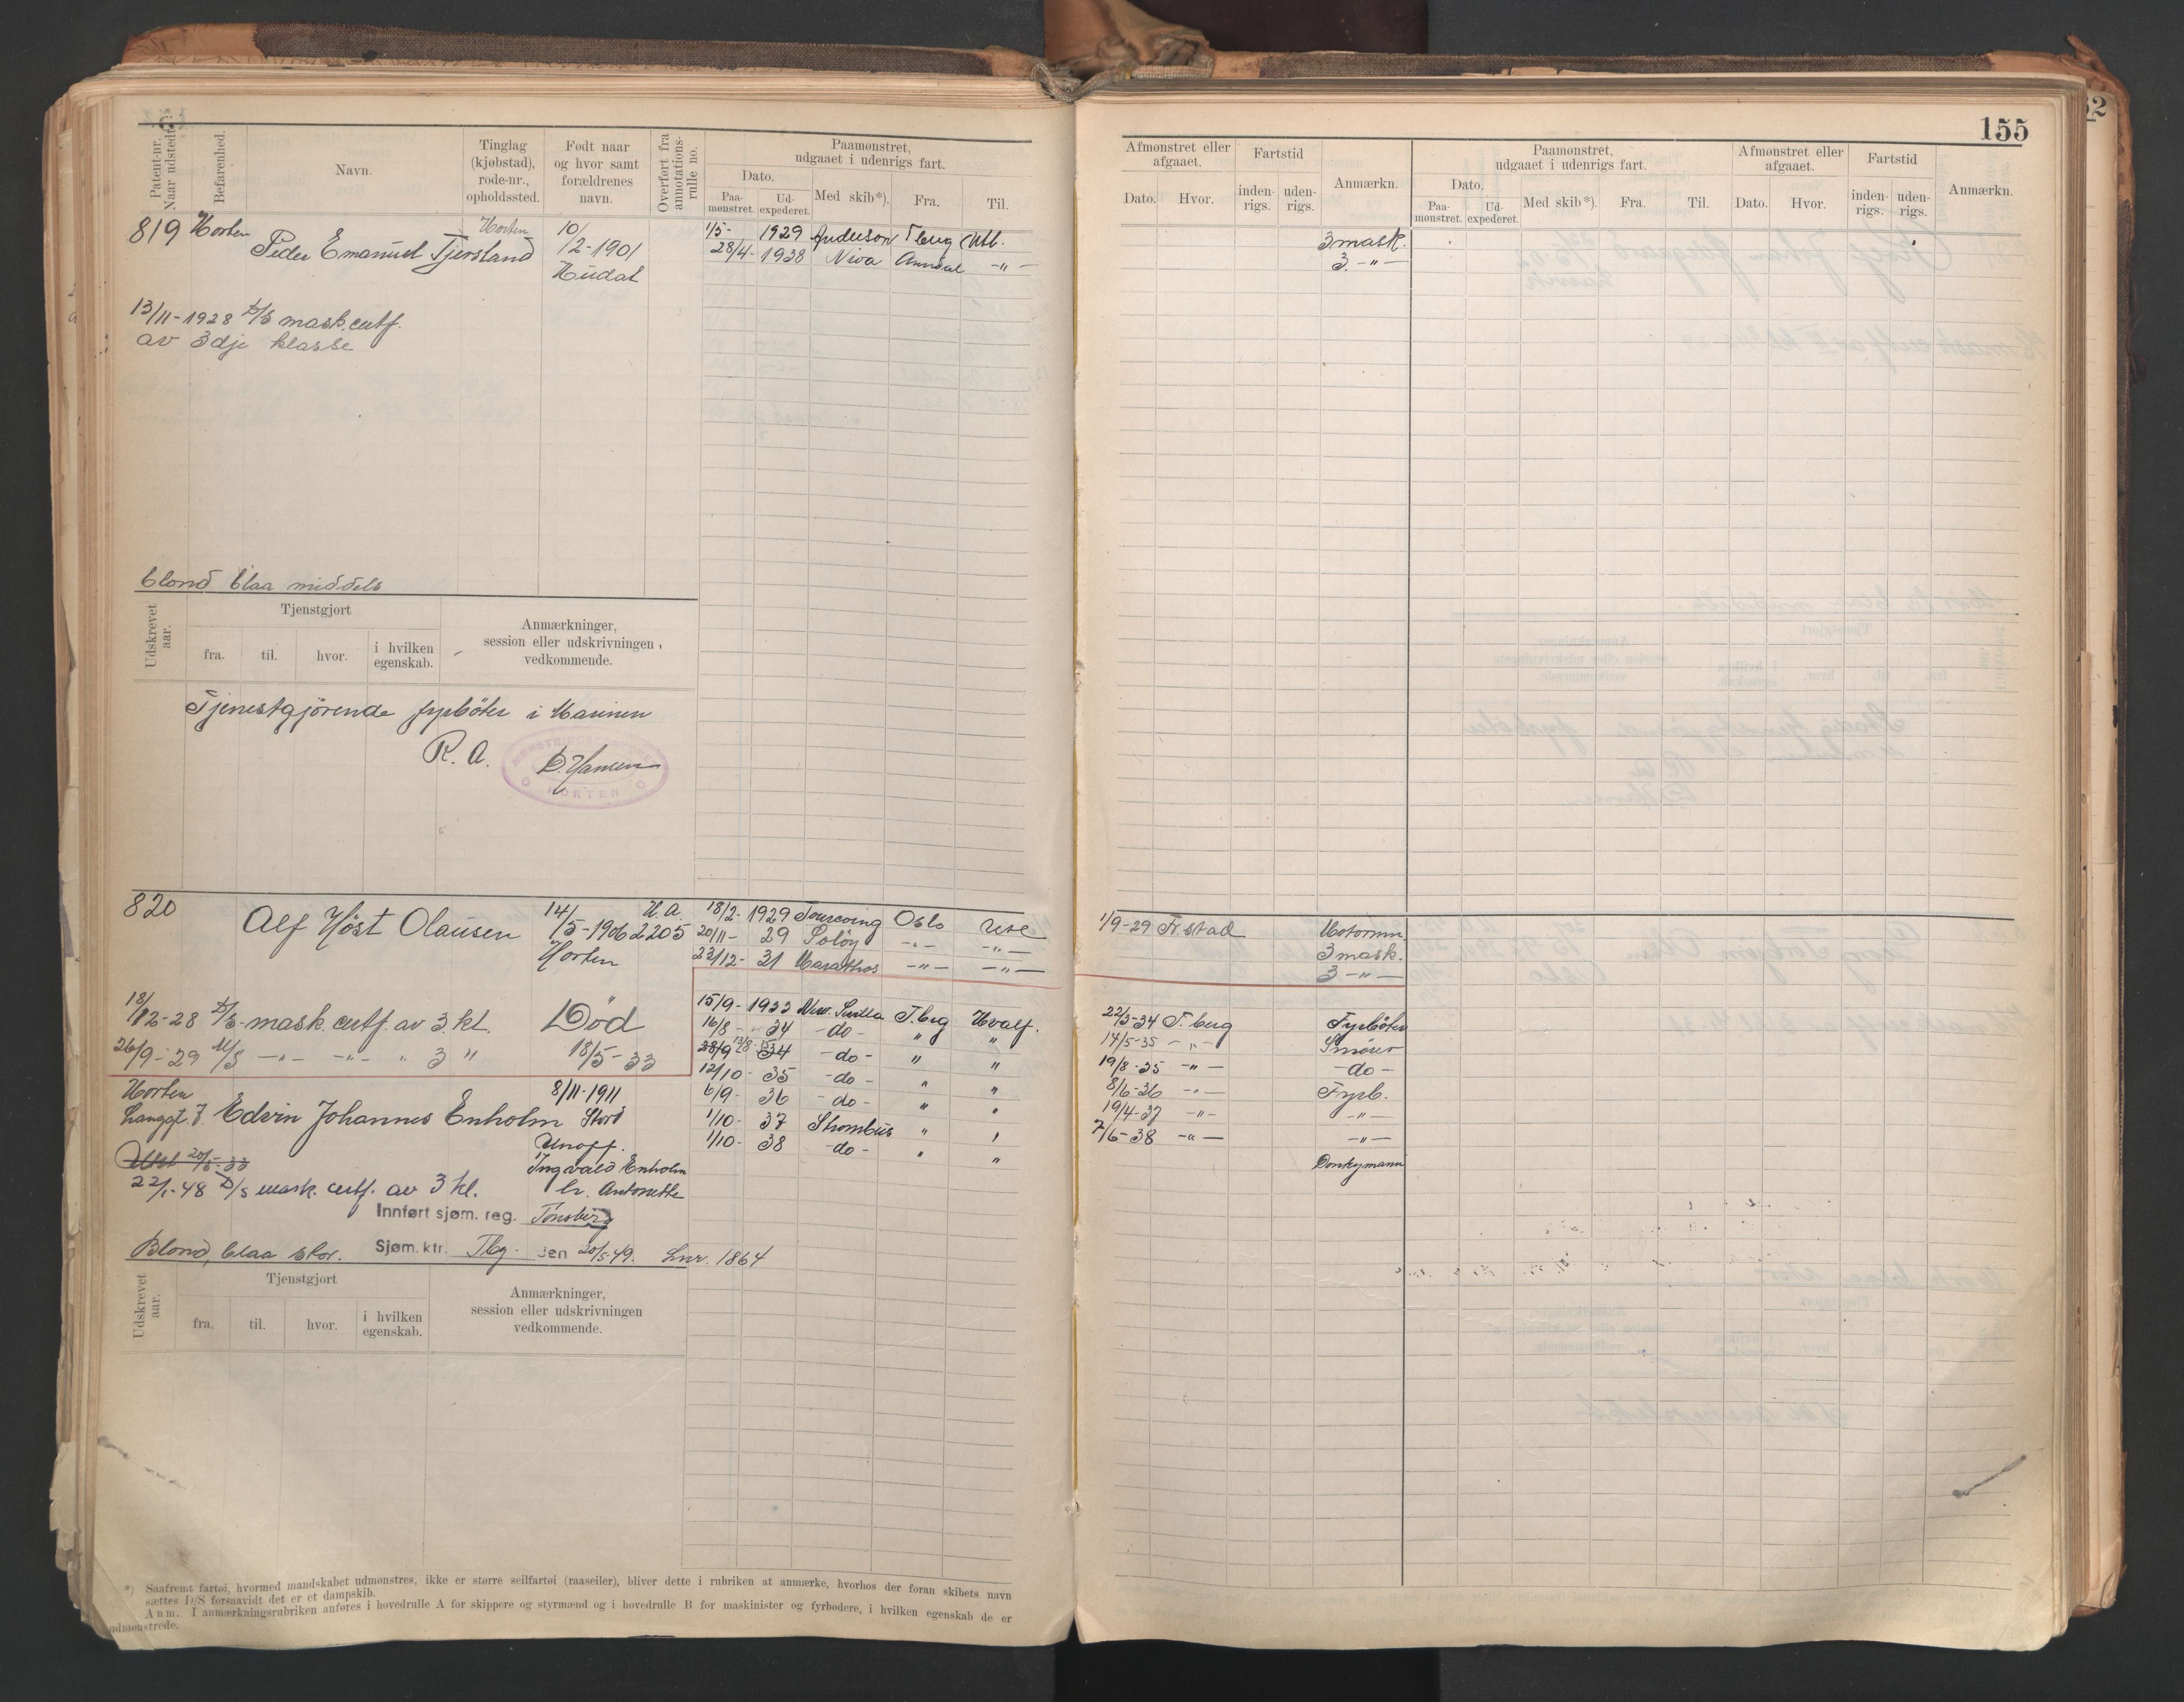 155
Patent-nr. Naar udstedt.
Befarenhed.
Navn.
Tinglag (kjøbstad), rode-nr., opholdssted.
Født naar og hvor samt forældrenes navn.
Overført fra annotations-rulle no.
Paamønstret, udgaaet i udenrigs fart.
Dato.
Paa-mønstret.
Ud-expederet.
Med skib*).
Fra.
Til.
Afmønstret eller afgaaet.
Dato.
Hvor.
Fartstid
inden-rigs.
uden-rigs.
Anmærkn.
Paamønstret, udgaaet i udenrigs fart.
Dato.
Paa-mønstret.
Ud-expederet.
Med skib*).
Fra.
Til.
Afmønstret eller afgaaet.
Dato.
Hvor.
Fartstid
inden-rigs.
uden-rigs.
Anmærkn.
819 Horten Peder Emanuel Tjersland Horten 10/12-1901
1/5- 1929 Anderson Tberg Utl. 3 mask.
28/4- 1938 Niva Arendal -"- 3. -"-
13/11-1928 D/S mask. certf.
av 3dje klasse
blond blaa middels
Udskrevet aar.
Tjenstgjort
fra.
til.
hvor.
i hvilken egenskab.
Anmærkninger, session eller udskrivningen vedkommende.
Tjenestgjørende fyrböter i Marinen
R. A.
HORTEN
820 Alf Höst Olausen 14/5-1906 H. A. 2205
Horten
18/2- 1929 Tourcoing Oslo Utl. 1/9-29 Fr.stad Motormn.
20/11- 29 Solöy -"- -"- 3 mask.
22/12- 31 Marathos -"- -"- 3 -"-
18/12-28 D/S- mask. certf. av 3. kl. Död
26/9-29 M/S -"- -"- " 3 " 18/5-33
15/9- 1933 New Sevilla T.brg Hvalf. 22/5-34 T.berg Fyrböter
16/8- 34 -do- " " 14/5-35 -"- Smörer
28/9 13/8- 34 -do- " " 19/8-35 -"- -do-
12/10- 35 -do- " " 8/6-36 -"- Fyrb.
6/9- 36 -do- " " 19/4-37 -"- -"-
1/10- 37 Strombus " " 7/6-38 -"- -"-
1/10- 38 -do- " " Donkymann
Horten
Langgt. 7. Edvin Johannes Enholm
8/11-1911
Stord
Ingvald Enholm
20/5-33
22/1-48 D/S mask. certf. av 3 kl.
Antonette
Innført sjøm. reg. Tönsberg
Blond, blaa stor. Sjøm. ktr. Tbg. den 20/5-49. Lnr. 1864
Udskrevet aar.
Tjenstgjort
fra.
til.
hvor.
i hvilken egenskab.
Anmærkninger, session eller udskrivningen vedkommende.
*) Saafremt fartøi, hvormed mandskabet udmønstres, ikke er større seilfartøi (raaseiler), bliver dette i rubriken at anmærke, hvorhos der foran skibets navn
sættes D/S forsaavidt det er et dampskib.
Anm. I anmærkningsrubriken anføres i hovedrulle A for skippere og styrmænd og i hovedrulle B for maskinister og fyrbødere, i hvilken egenskab de er
udmønstrede.